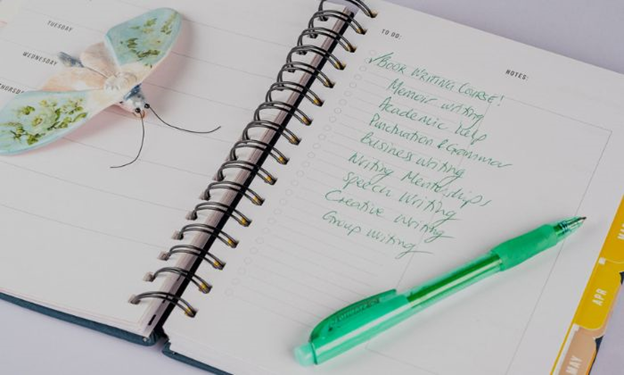 TUESDAY
WEDNESDAY
THURSDAY
TO DO:
NOTES:
✓Book Writing Course!
Memoir writing
Academic help
Punctuation & Grammar
Business Writing
Writing Mentorships
Speech Writing
Creative Writing
Group Writing
APR
MAY